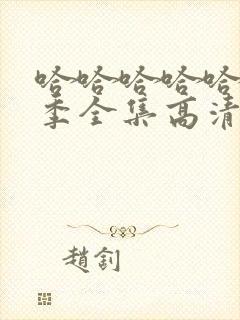 哈哈哈哈哈
季全集高清
趙釗